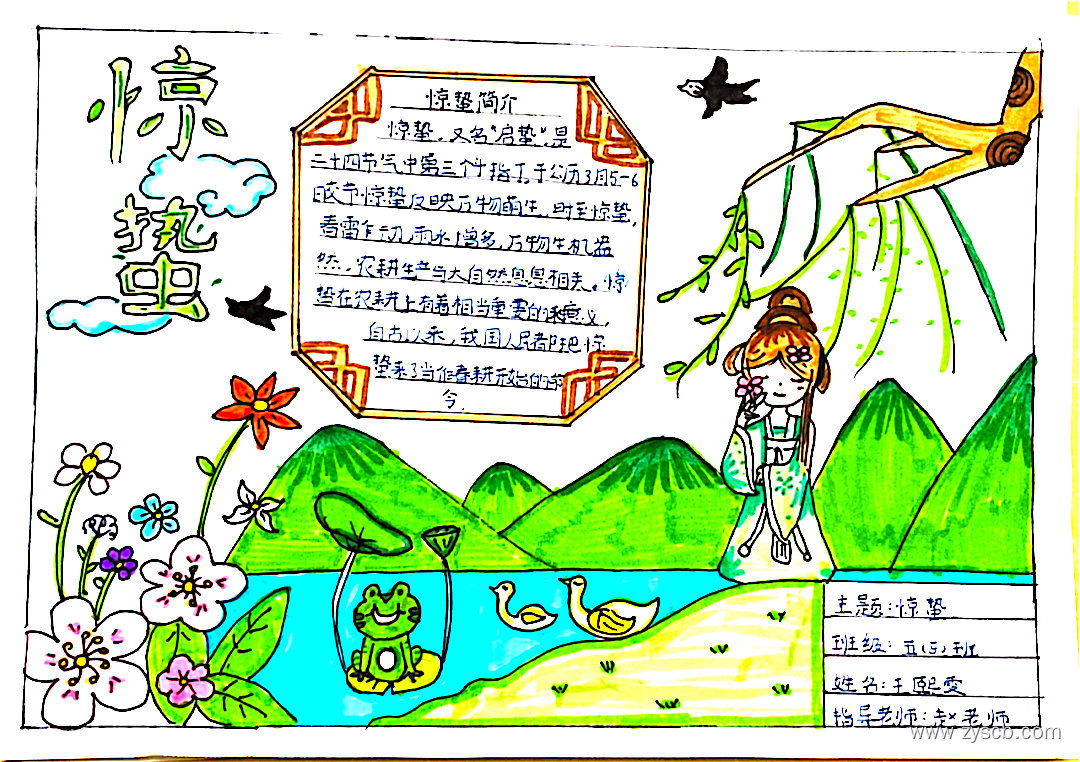 惊
蛰
惊蛰简介
惊蛰，又名“启蛰”，是
二十四节气中第三个节气，于公历3月5-6
日交节。惊蛰反映万物萌生，时至惊蛰，
春雷乍动，雨水增多，万物生机盎
然。农耕生产与大自然息息相关。惊
蛰在农耕上有着相当重要的意义，
自古以来，我国人民都把惊
蛰来了当作春耕开始的节
令.
主题:惊蛰
班级: 五(5)班
姓名:王熙雯
指导老师:赵老师
www.zyscb.com